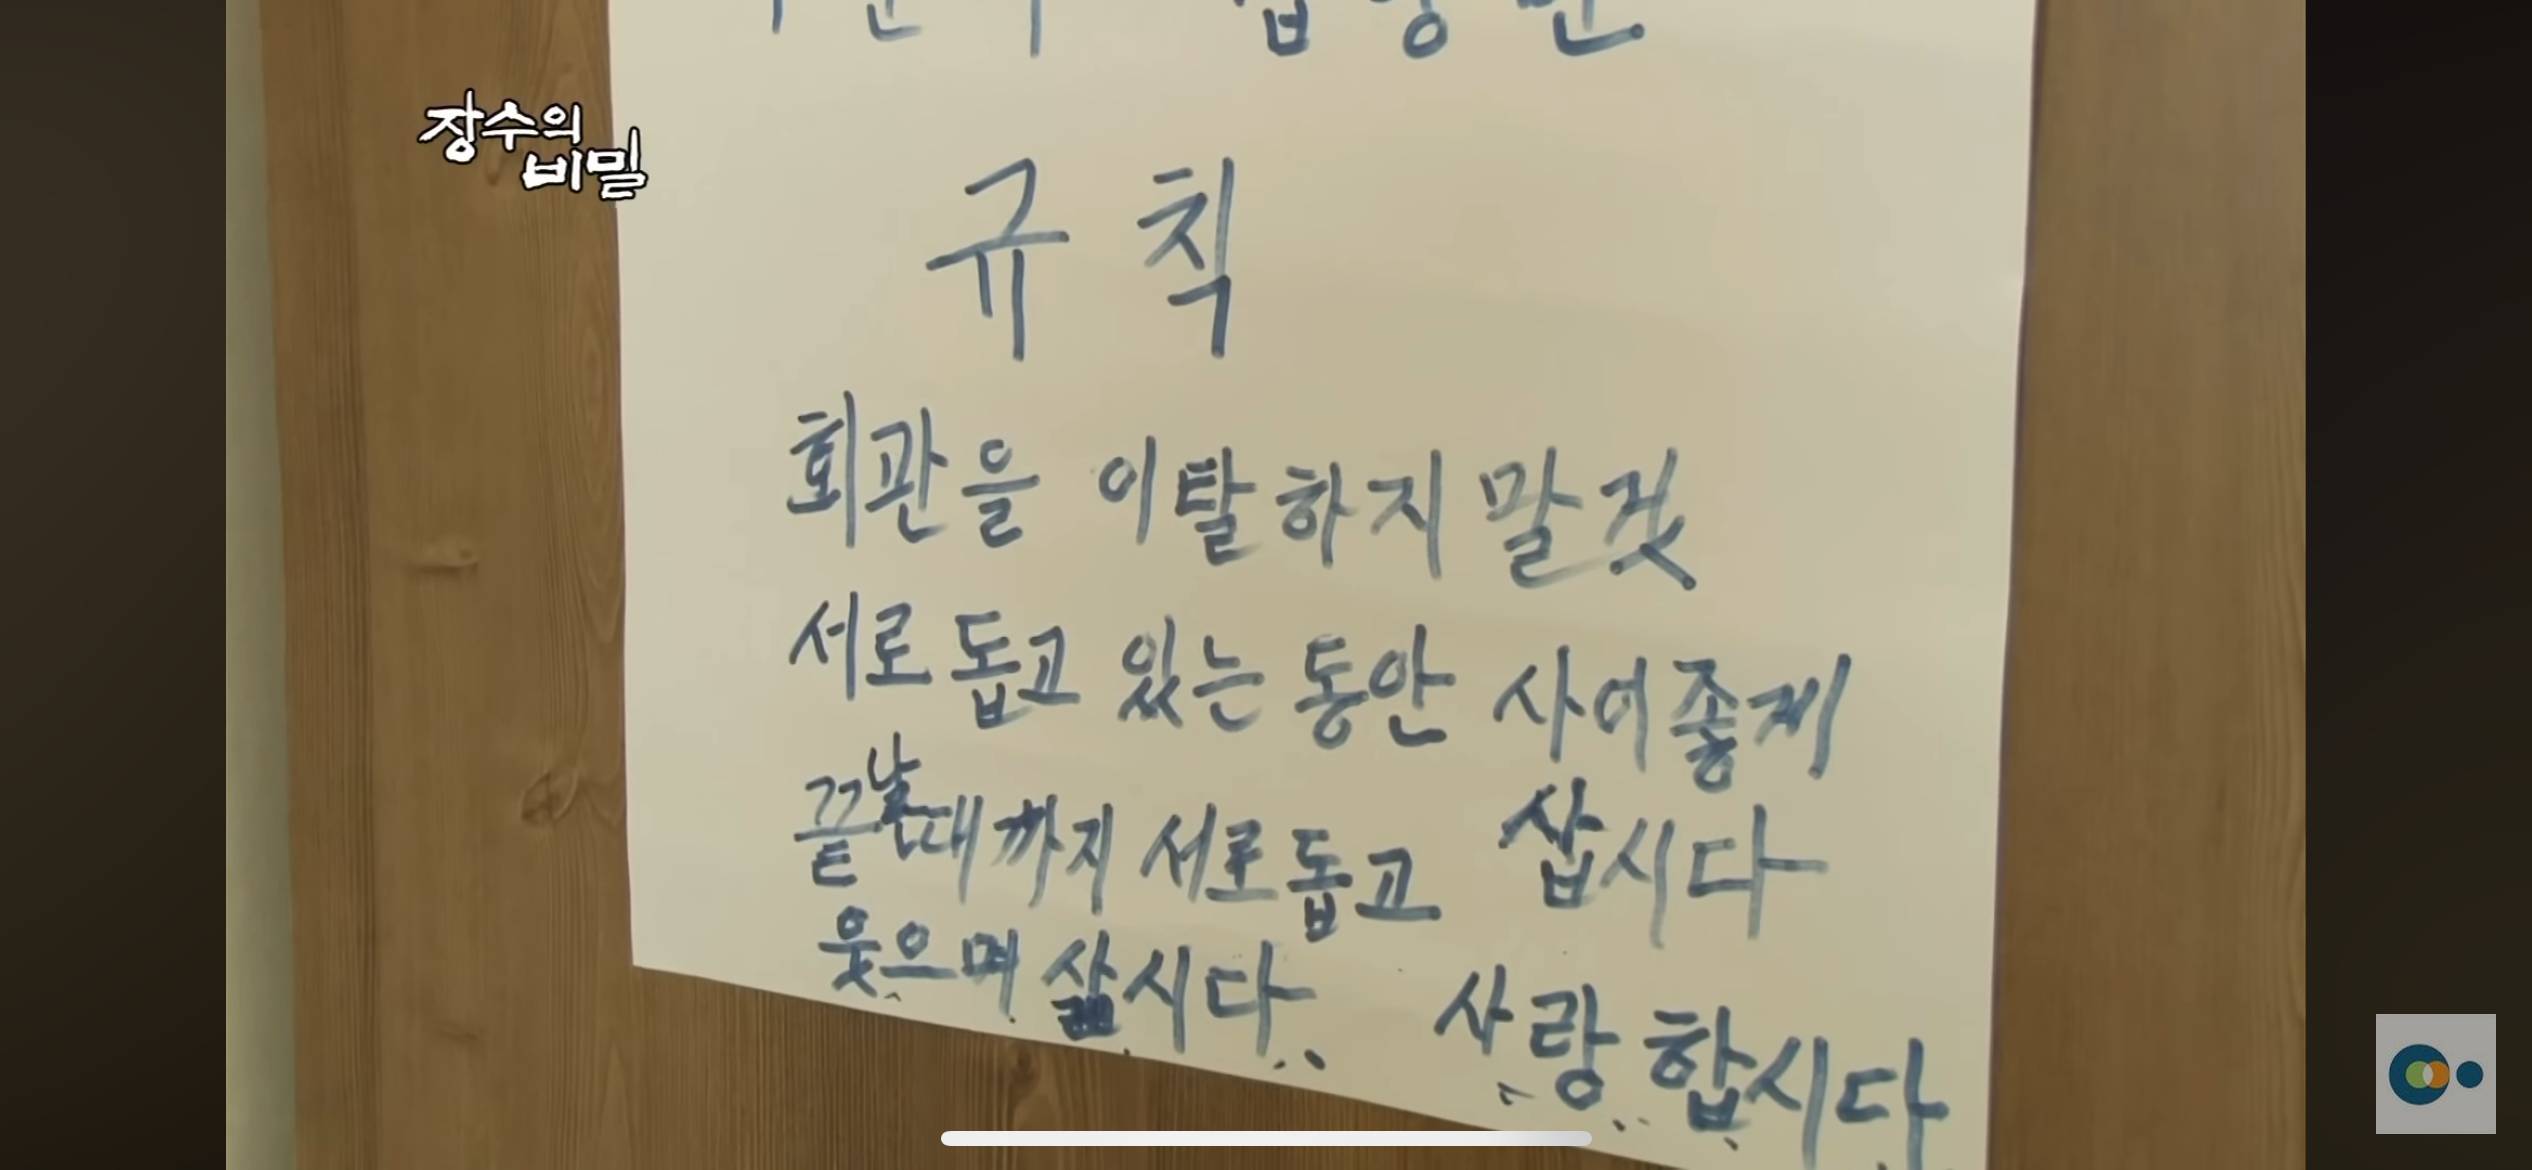 장수의
비밀
규칙
회관을 이탈하지말것
서로돕고 있는동안 사이좋게
끝날때까지 서로돕고 삽시다
웃으며 삽시다 사랑합시다